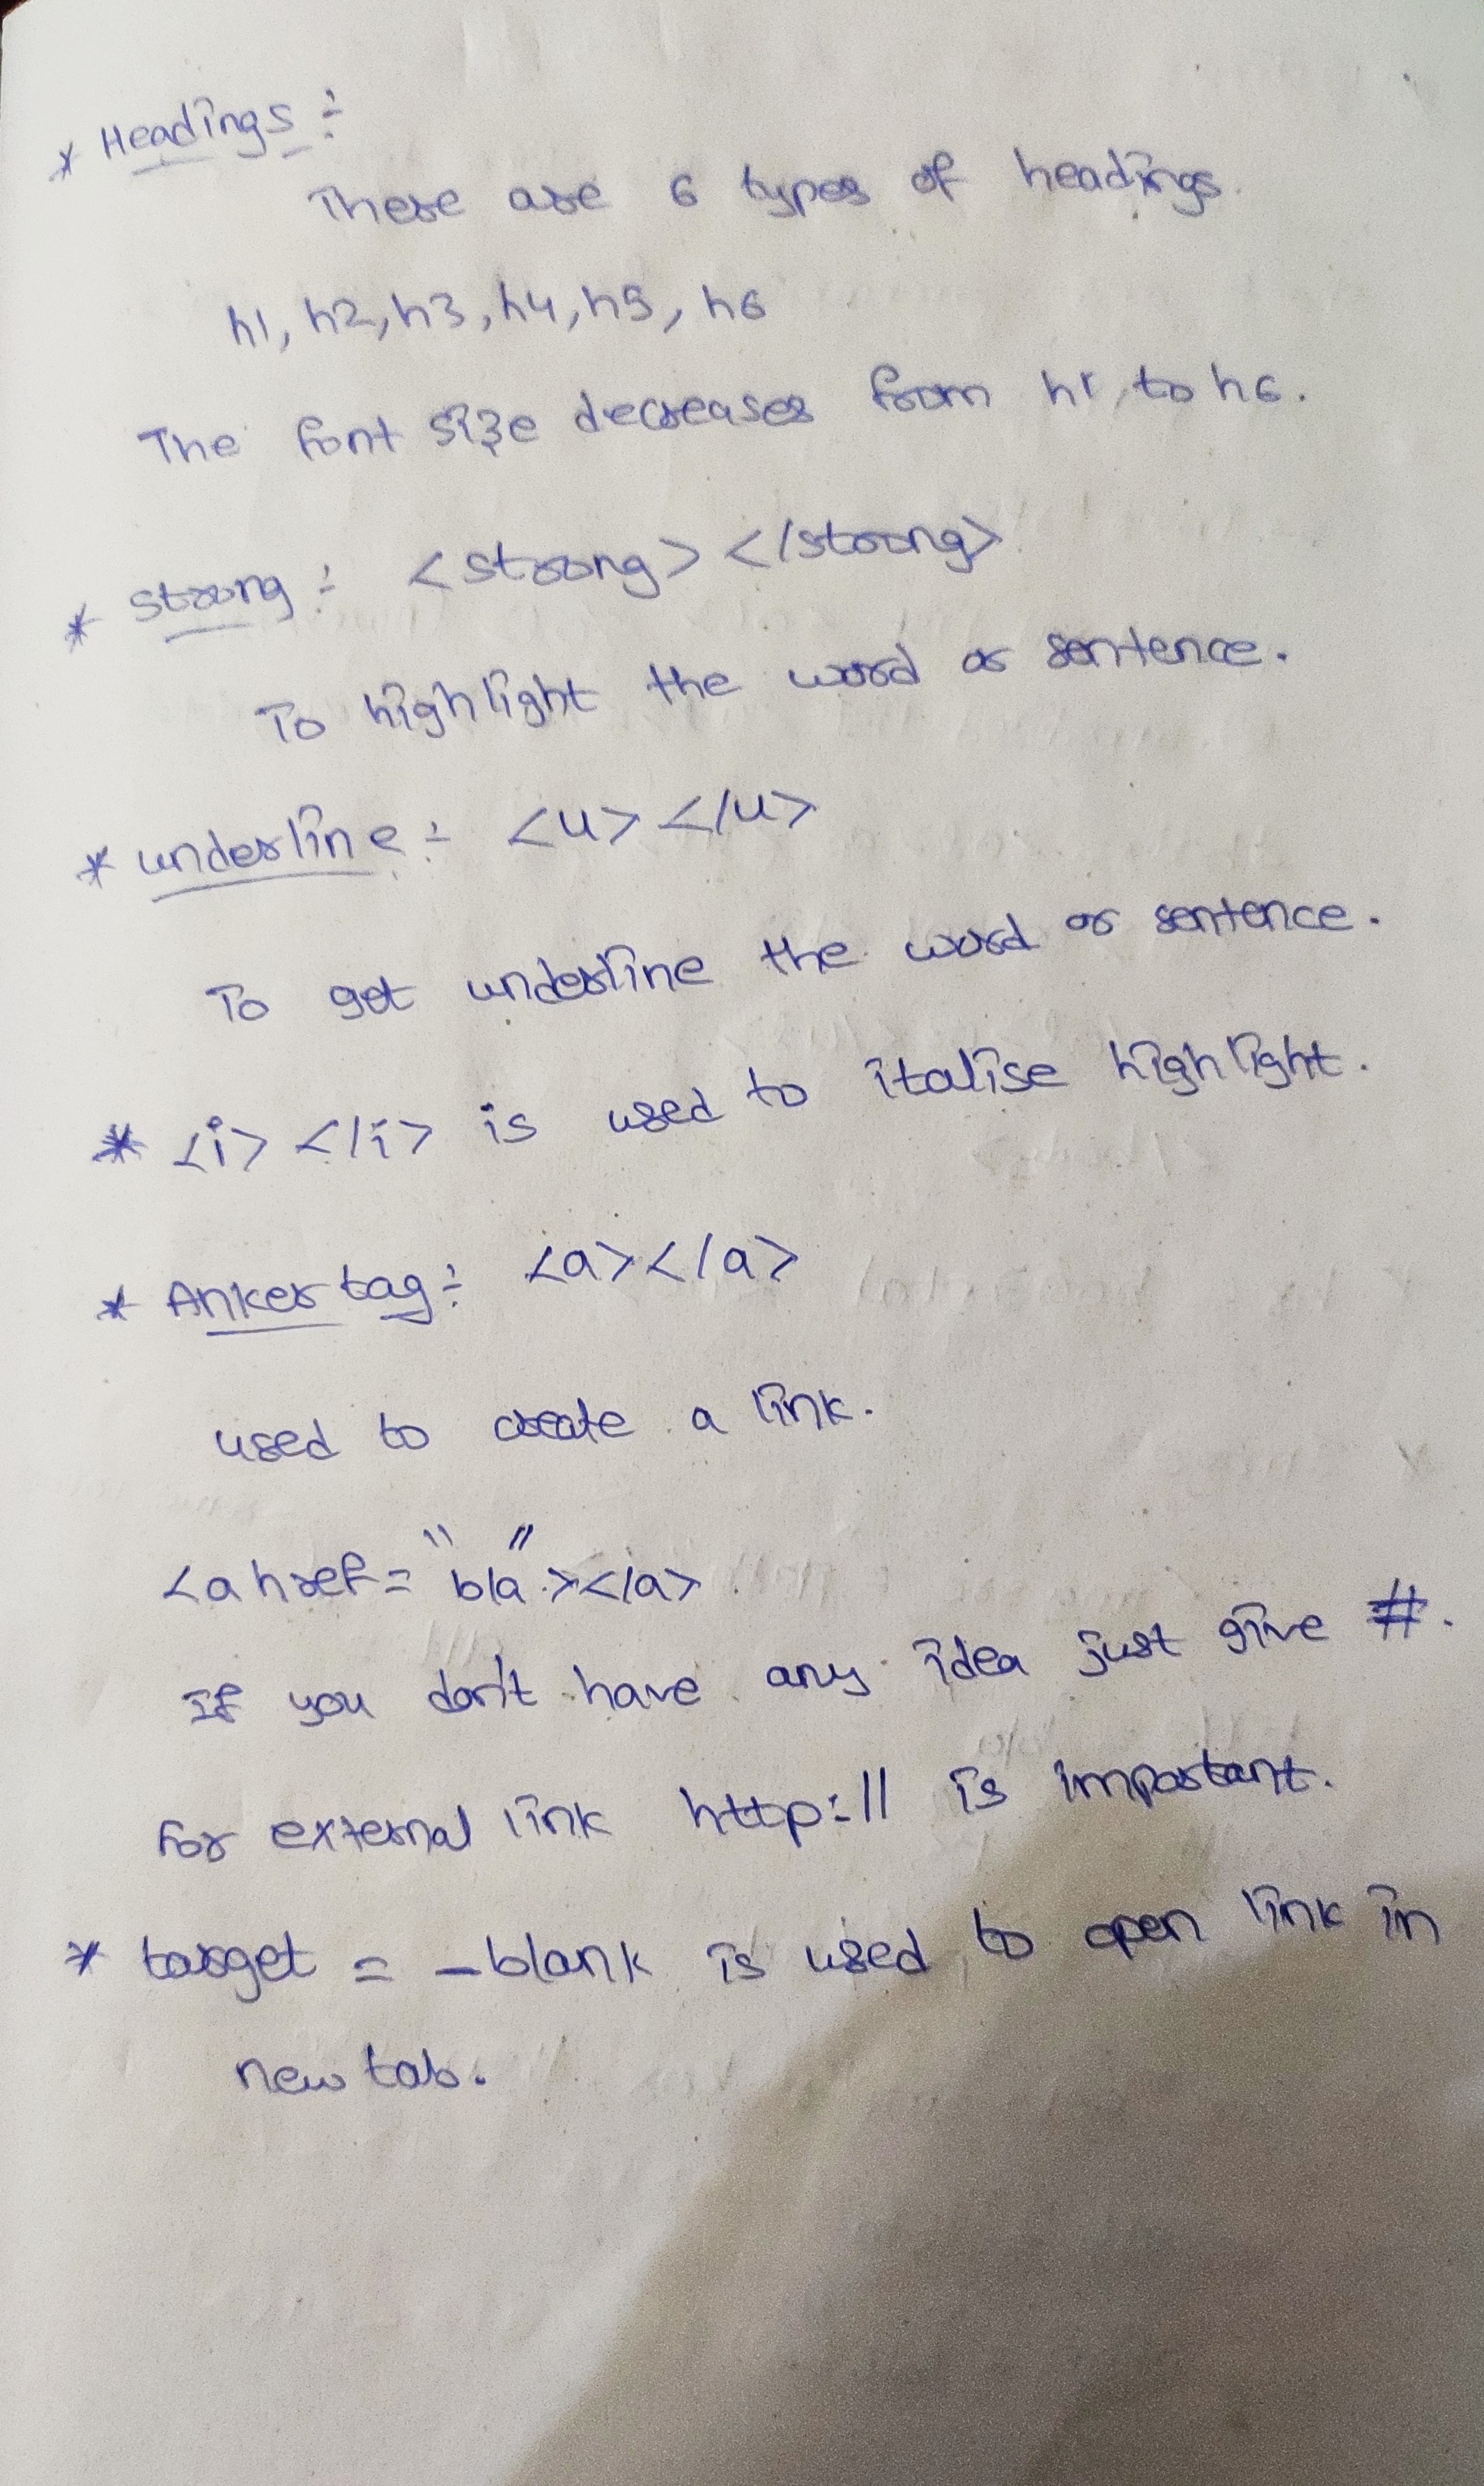 * Headings :-
There are 6 types of headings.
h1, h2, h3, h4, h5, h6
The font size decreases from h1 to h6.
* strong :- <strong> </strong>
To highlight the word or sentence.
* underline :- <u> </u>
To get underline the word or sentence.
* <i> </i> is used to italise highlight.
* Anker tag :- <a></a>
used to create a link.
<a href = "bla"></a>
If you don't have any idea just give #.
For external link http:// is important.
* target = _blank is used to open link in
new tab.